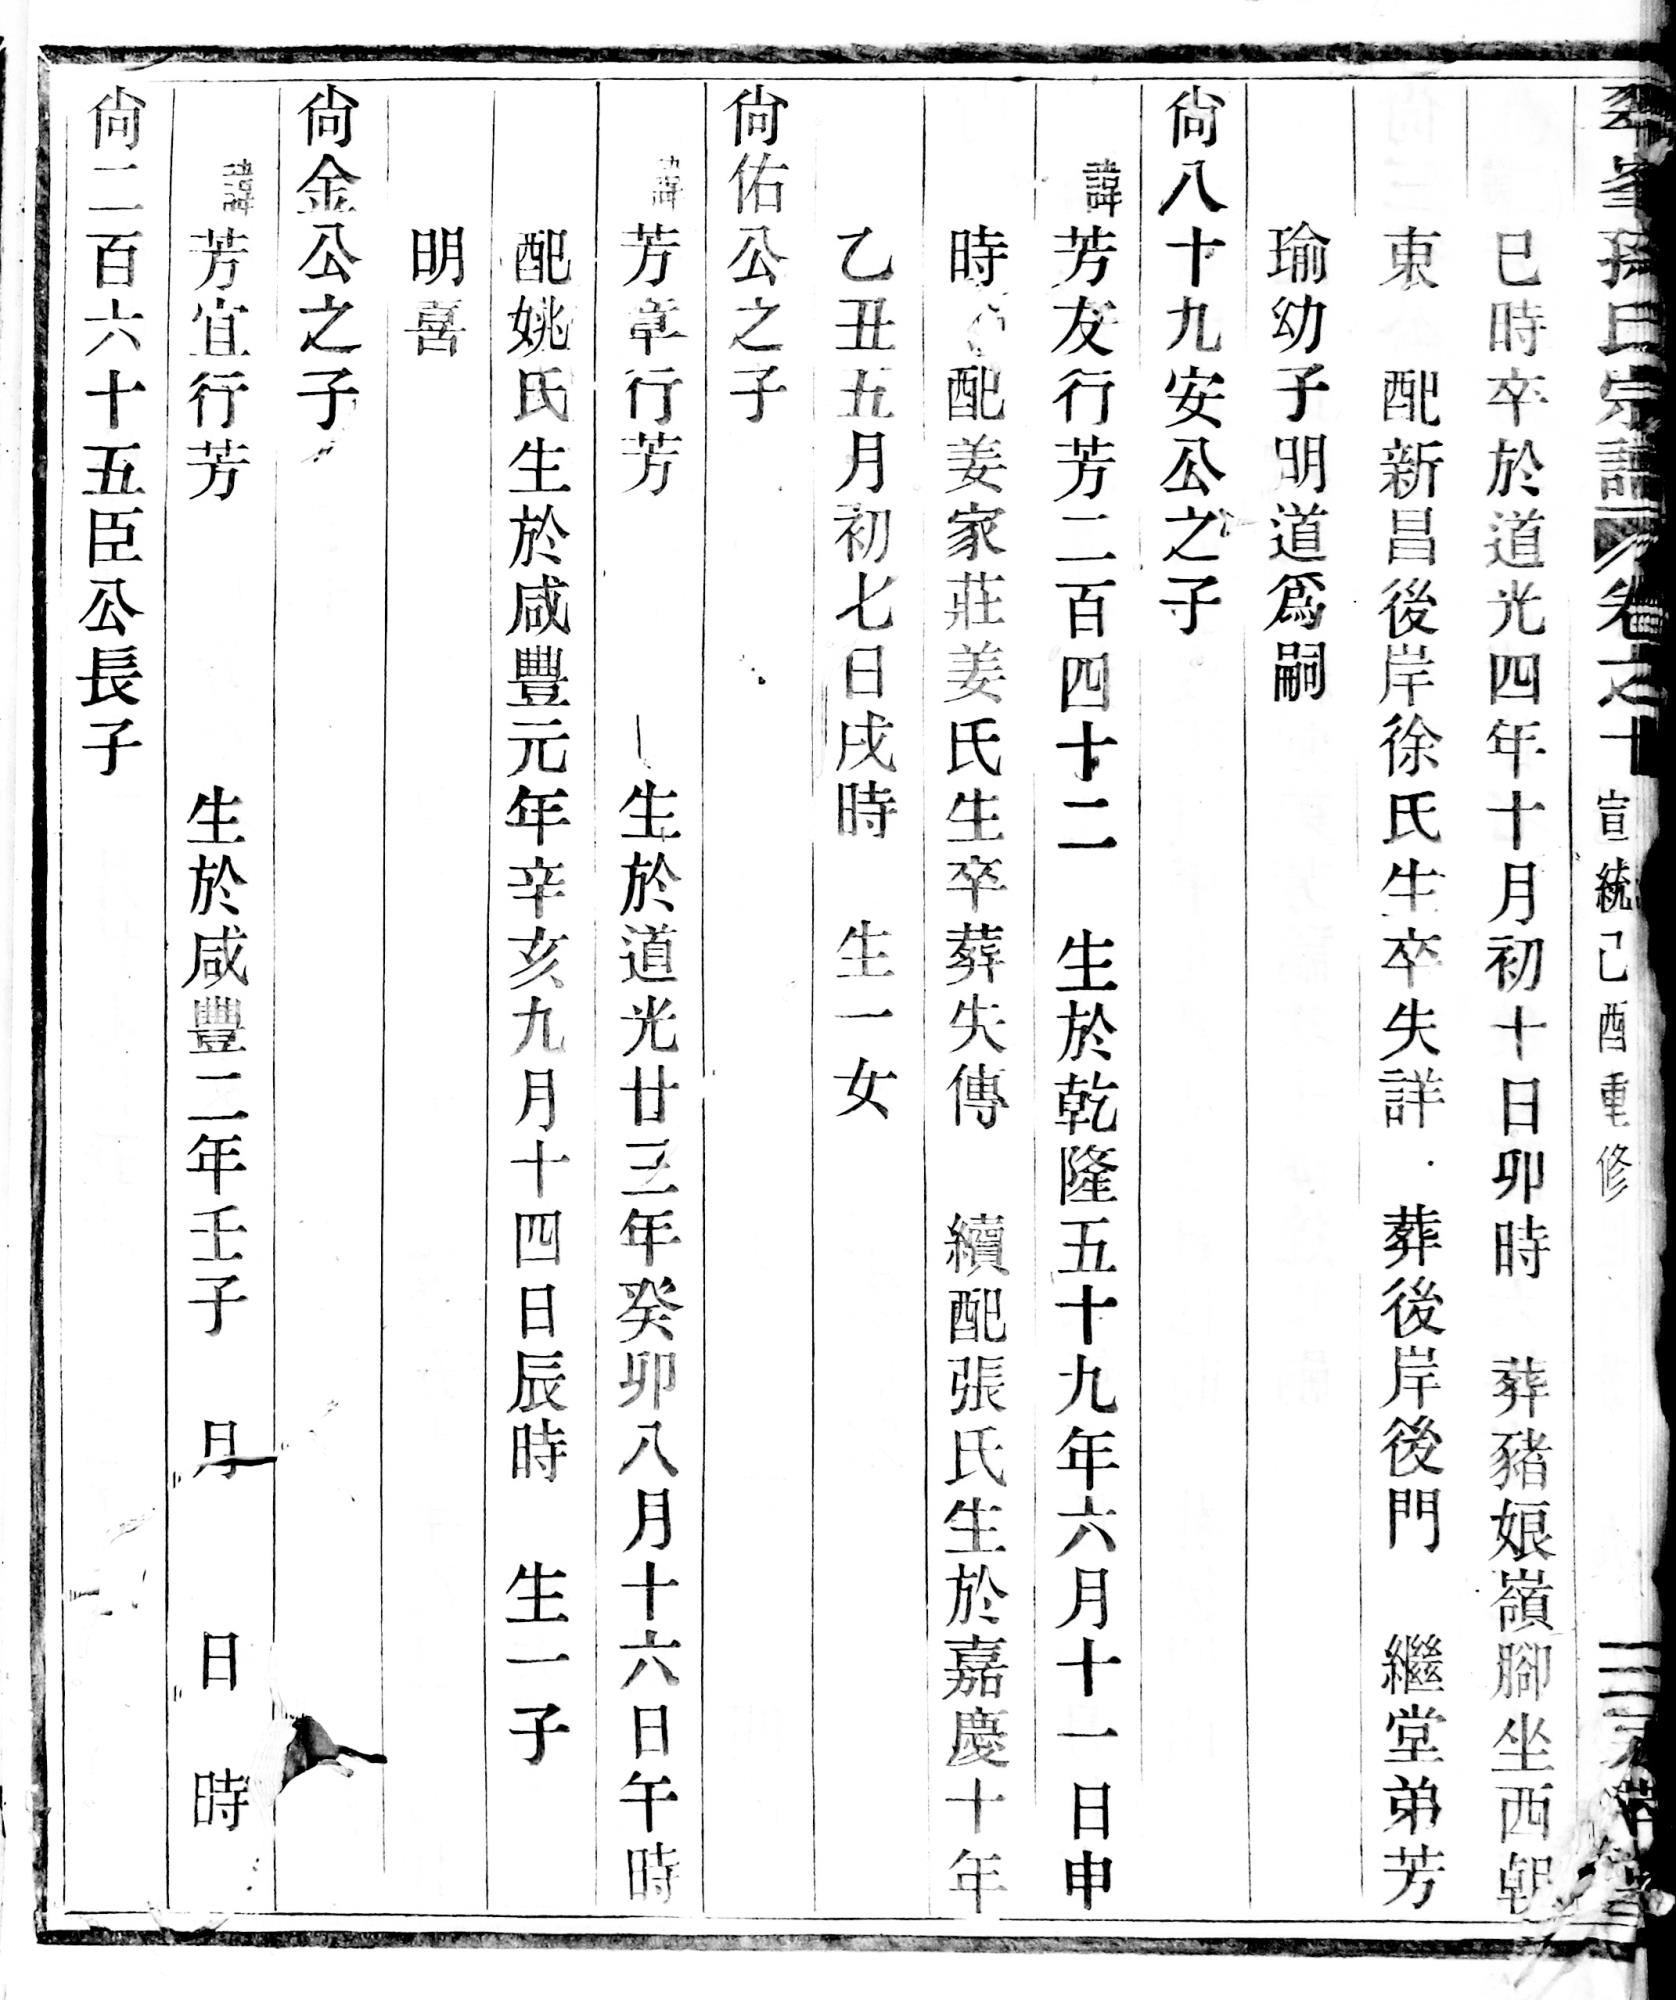 孫氏宗譜 卷之十 宣統己酉重修
巳時卒於道光四年十月初十日卯時 葬豬娘嶺腳坐西朝
東 配新昌後岸徐氏生卒失詳 葬後岸後門 繼堂弟芳
瑜幼子明道爲嗣
尙八十九安公之子
諱芳友行芳二百四十二 生於乾隆五十九年六月十一日申
時 配姜家莊姜氏生卒葬失傳 續配張氏生於嘉慶十年
乙丑五月初七日戌時 生一女
尙佑公之子
諱芳章行芳 生於道光廿三年癸卯八月十六日午時
配姚氏生於咸豐元年辛亥九月十四日辰時 生一子
明喜
尙金公之子
諱芳宜行芳 生於咸豐二年壬子 月 日 時
尙二百六十五臣公長子